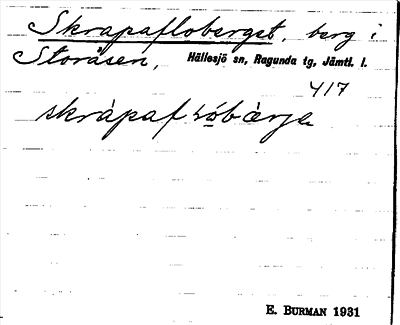 Skrapafloberget, berg i
Storåsen, Hällesjö sn, Ragunda tg, Jämtl. l.
417
skrápaf
E. BURMAN 1931